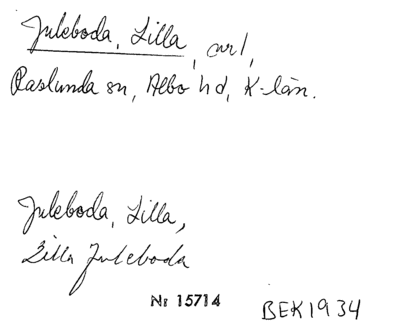 Juleboda, Lilla, avsl,
Ravlunda sn, Albo hd, K-län.
Juleboda, Lilla,
Lilla Juleboda
Nr 15714
BEK 1934